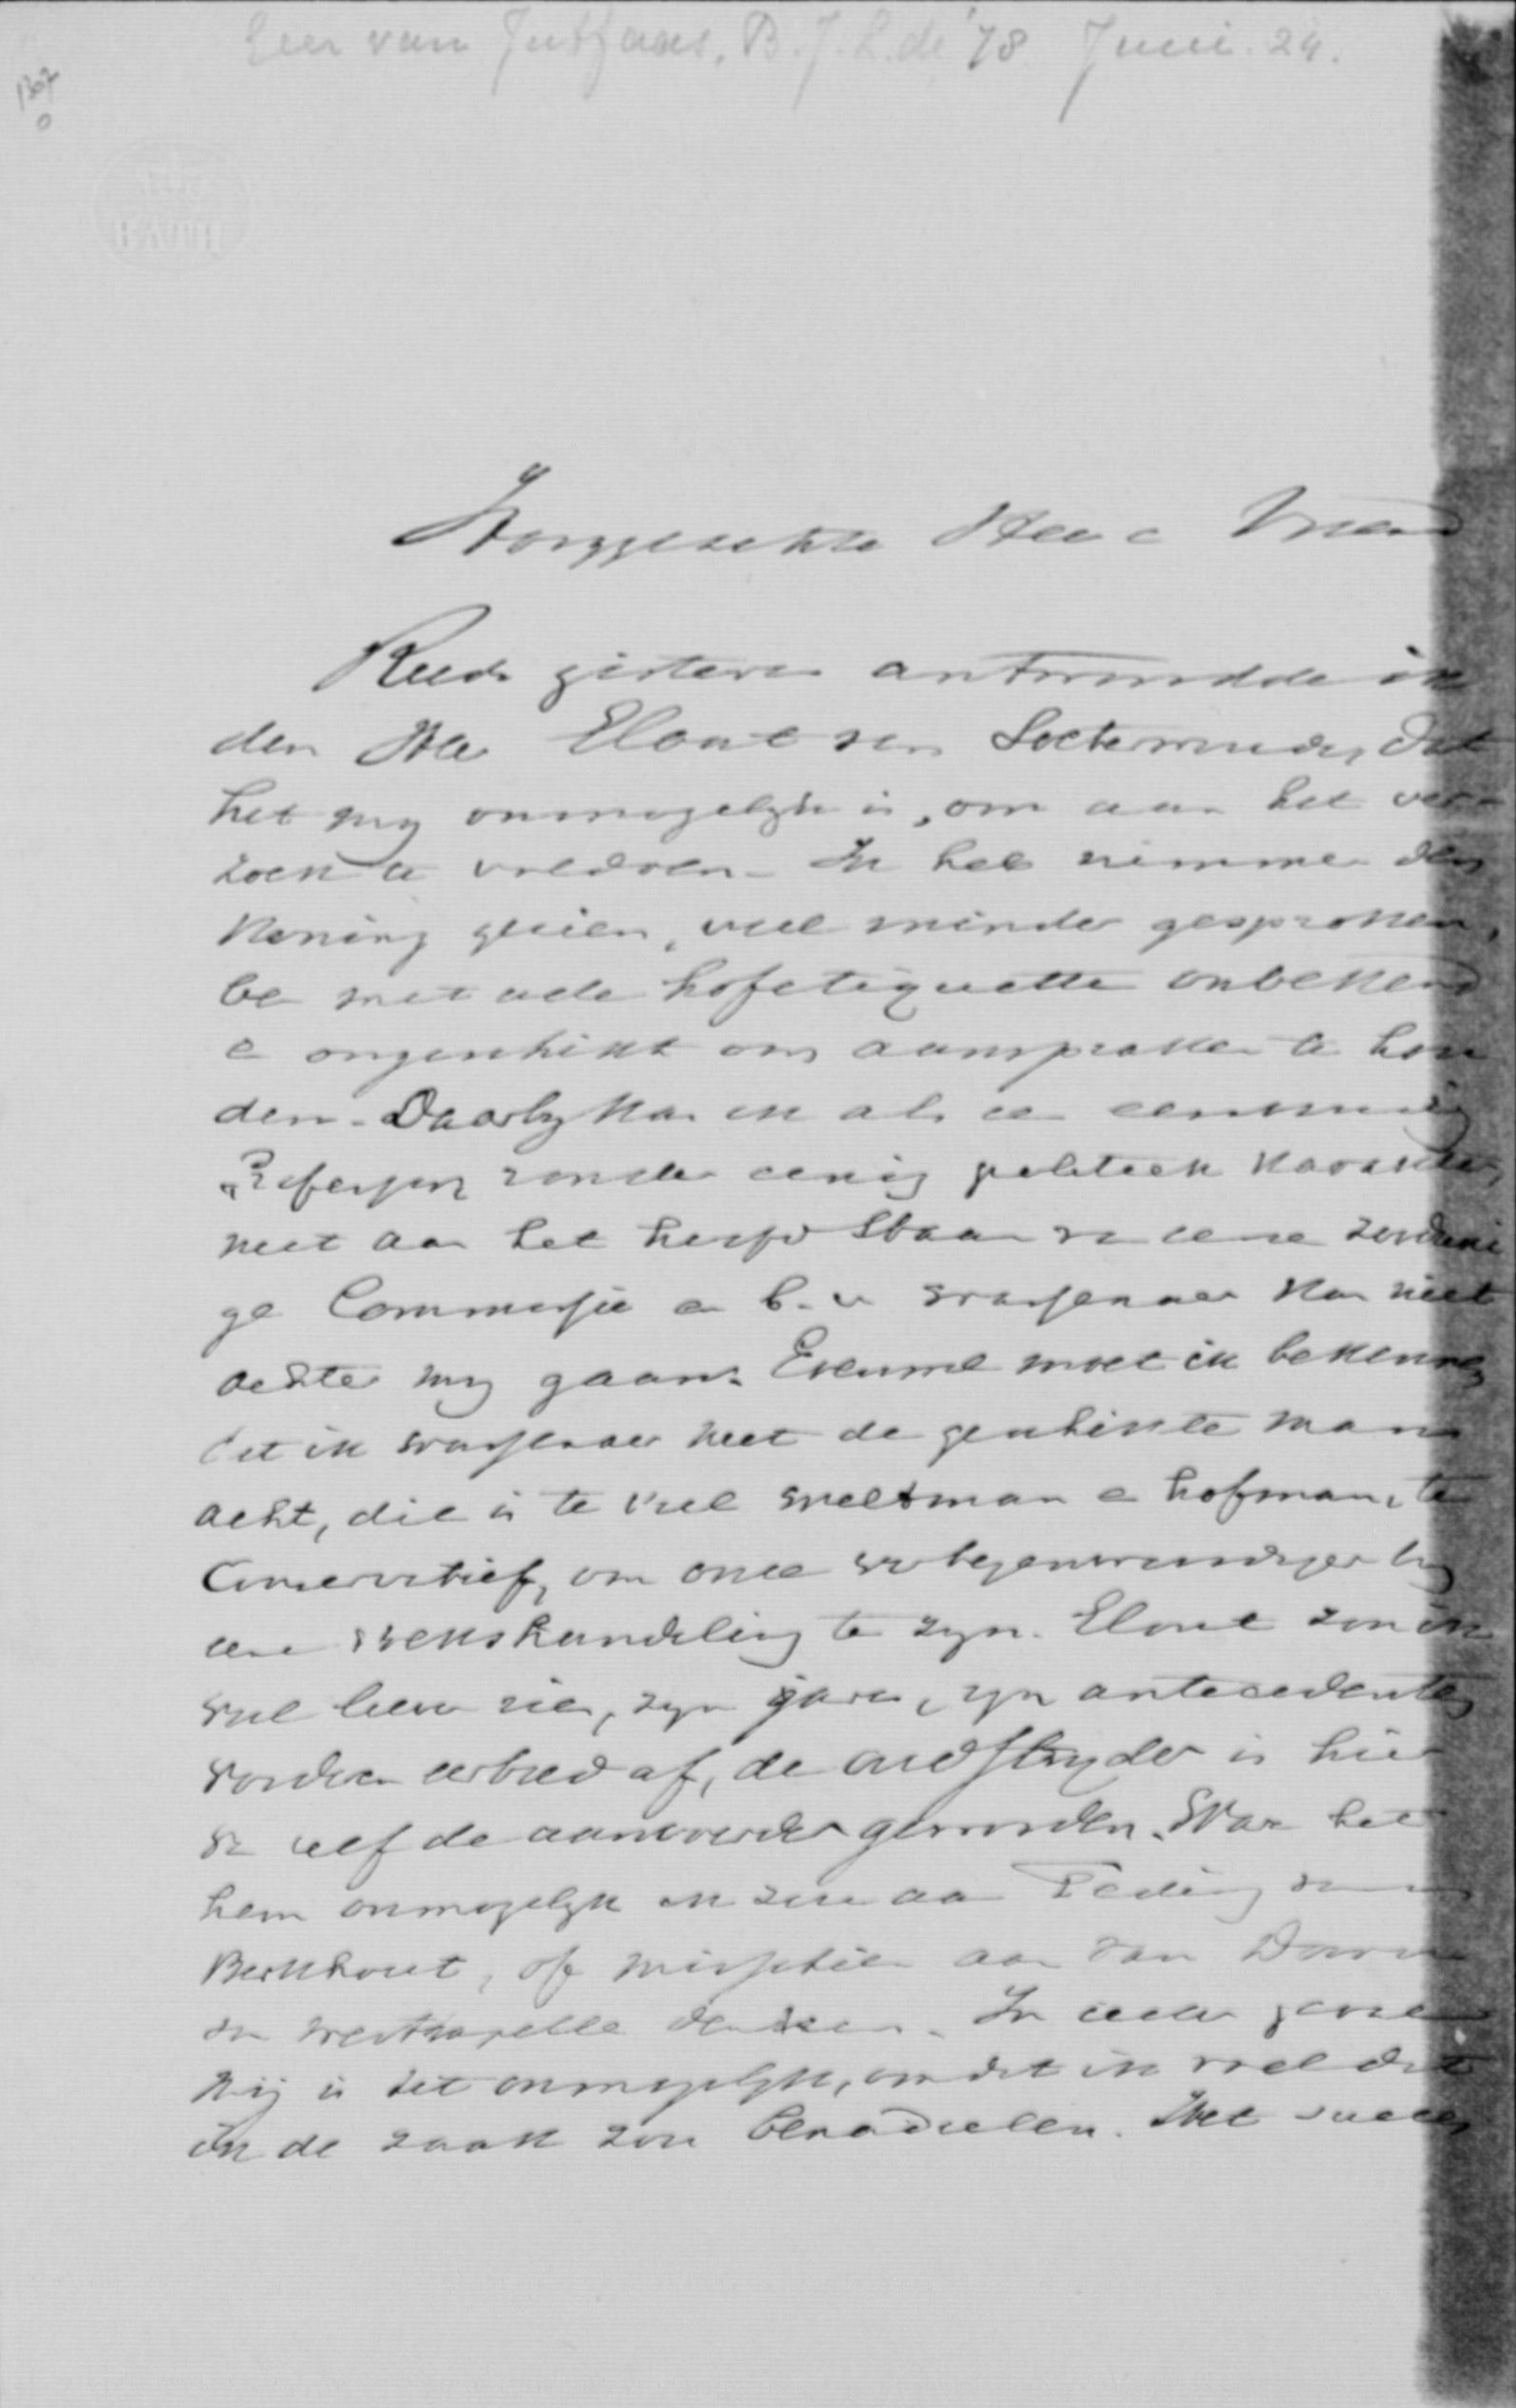 Geer van Jutfaas, B.J.L.de '78 Juni. 24.
1307
0
Hooggeachte Heer e Vriend
Reeds gisteren antwoordde ik
den Heer Elout van Soeterwoude, dat
het my onmogelyk is, om aan het ver-
zoek te voldoen. Ik heb nimmer den
Koning gezien, veel minder gesproken,
be met alle hofetiquette onbekend
e ongeschikt om aanspraken te hou
den. Daarby kan ik als een eenvoudig
Professor zonder eenig politiek karakter
niet aan het hoofd staan van eene zoodani
ge Commissie en b.v. Wassenaer kan niet
achter my gaan. Evenwel moet ik bekennen
dat ik Wassenaer niet de geschikte man
acht, die is te veel wereldman e hofman, te
Conservatief, om onze vertegenwoordiger by
eene volkshandeling te zyn. Elout zou ik
wel liever zien, zyn jaren, zyn antecedenten
vorderen eerbied af, de oudstryder is hier
van zelf de aanvoerder geworden. Ware het
hem onmogelyk ik zou aan Teding van
Berkhout, of misschien aan van Doorn
van Westkapelle denken. In ieder geval
My is het onmogelyk, omdat ik weet dat
ik de zaak zou benadeelen. Het succes